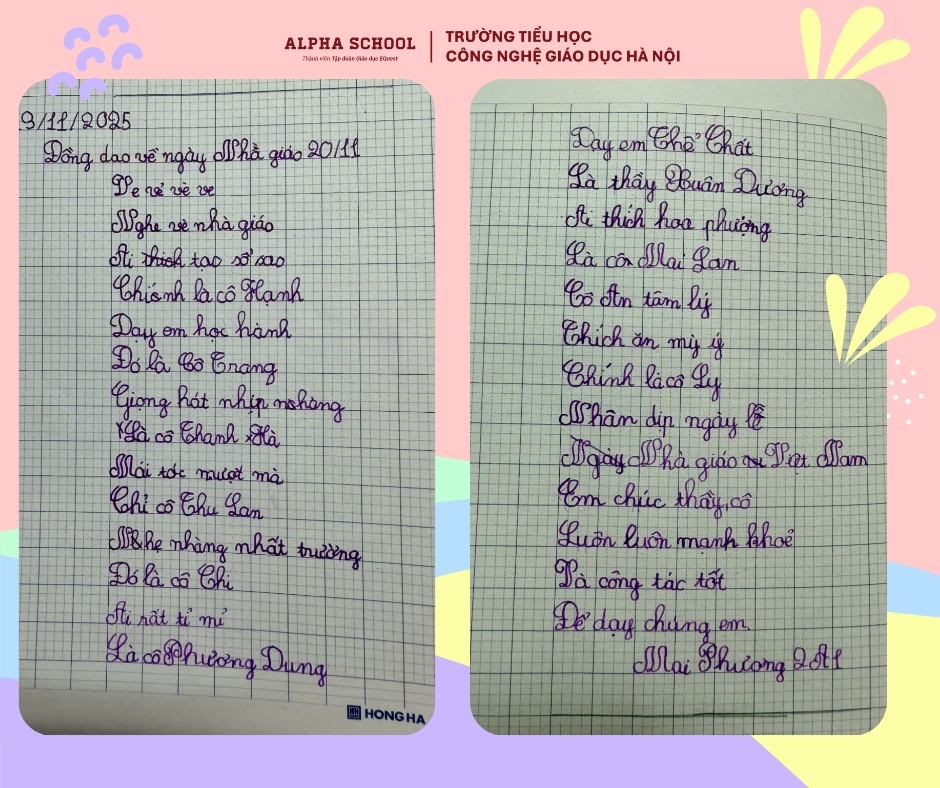 ALPHA SCHOOL
Thành viên Tập đoàn Giáo dục EQuest
TRƯỜNG TIỂU HỌC
CÔNG NGHỆ GIÁO DỤC HÀ NỘI
9/11/2025
Đồng dao về ngày Nhà giáo 20/11
Ve vẻ vè ve
Nghe vè nhà giáo
Ai thích tạo sổ sao
Chính là cô Hạnh
Dạy em học hành
Đó là Cô Trang
Giọng hát nhịp nhàng
Là cô Thanh Hà
Mái tóc mượt mà
Chỉ cô Thu Lan
Nhẹ nhàng nhất trường
Đó là cô Chi
Ai rất tỉ mỉ
Là cô Phương Dung
HONG HA
Dạy em Thể Chất
Là thầy Xuân Dương
Ai thích hoa phượng
Là cô Mai Lan
Cô Ân tâm lý
Thích ăn mỳ ý
Chính là cô Ly
Nhân dịp ngày lễ
Ngày Nhà giáo Việt Nam
Em chúc thầy, cô
Luôn luôn mạnh khoẻ
Và công tác tốt
Để dạy chúng em.
Mai Phương 2A1